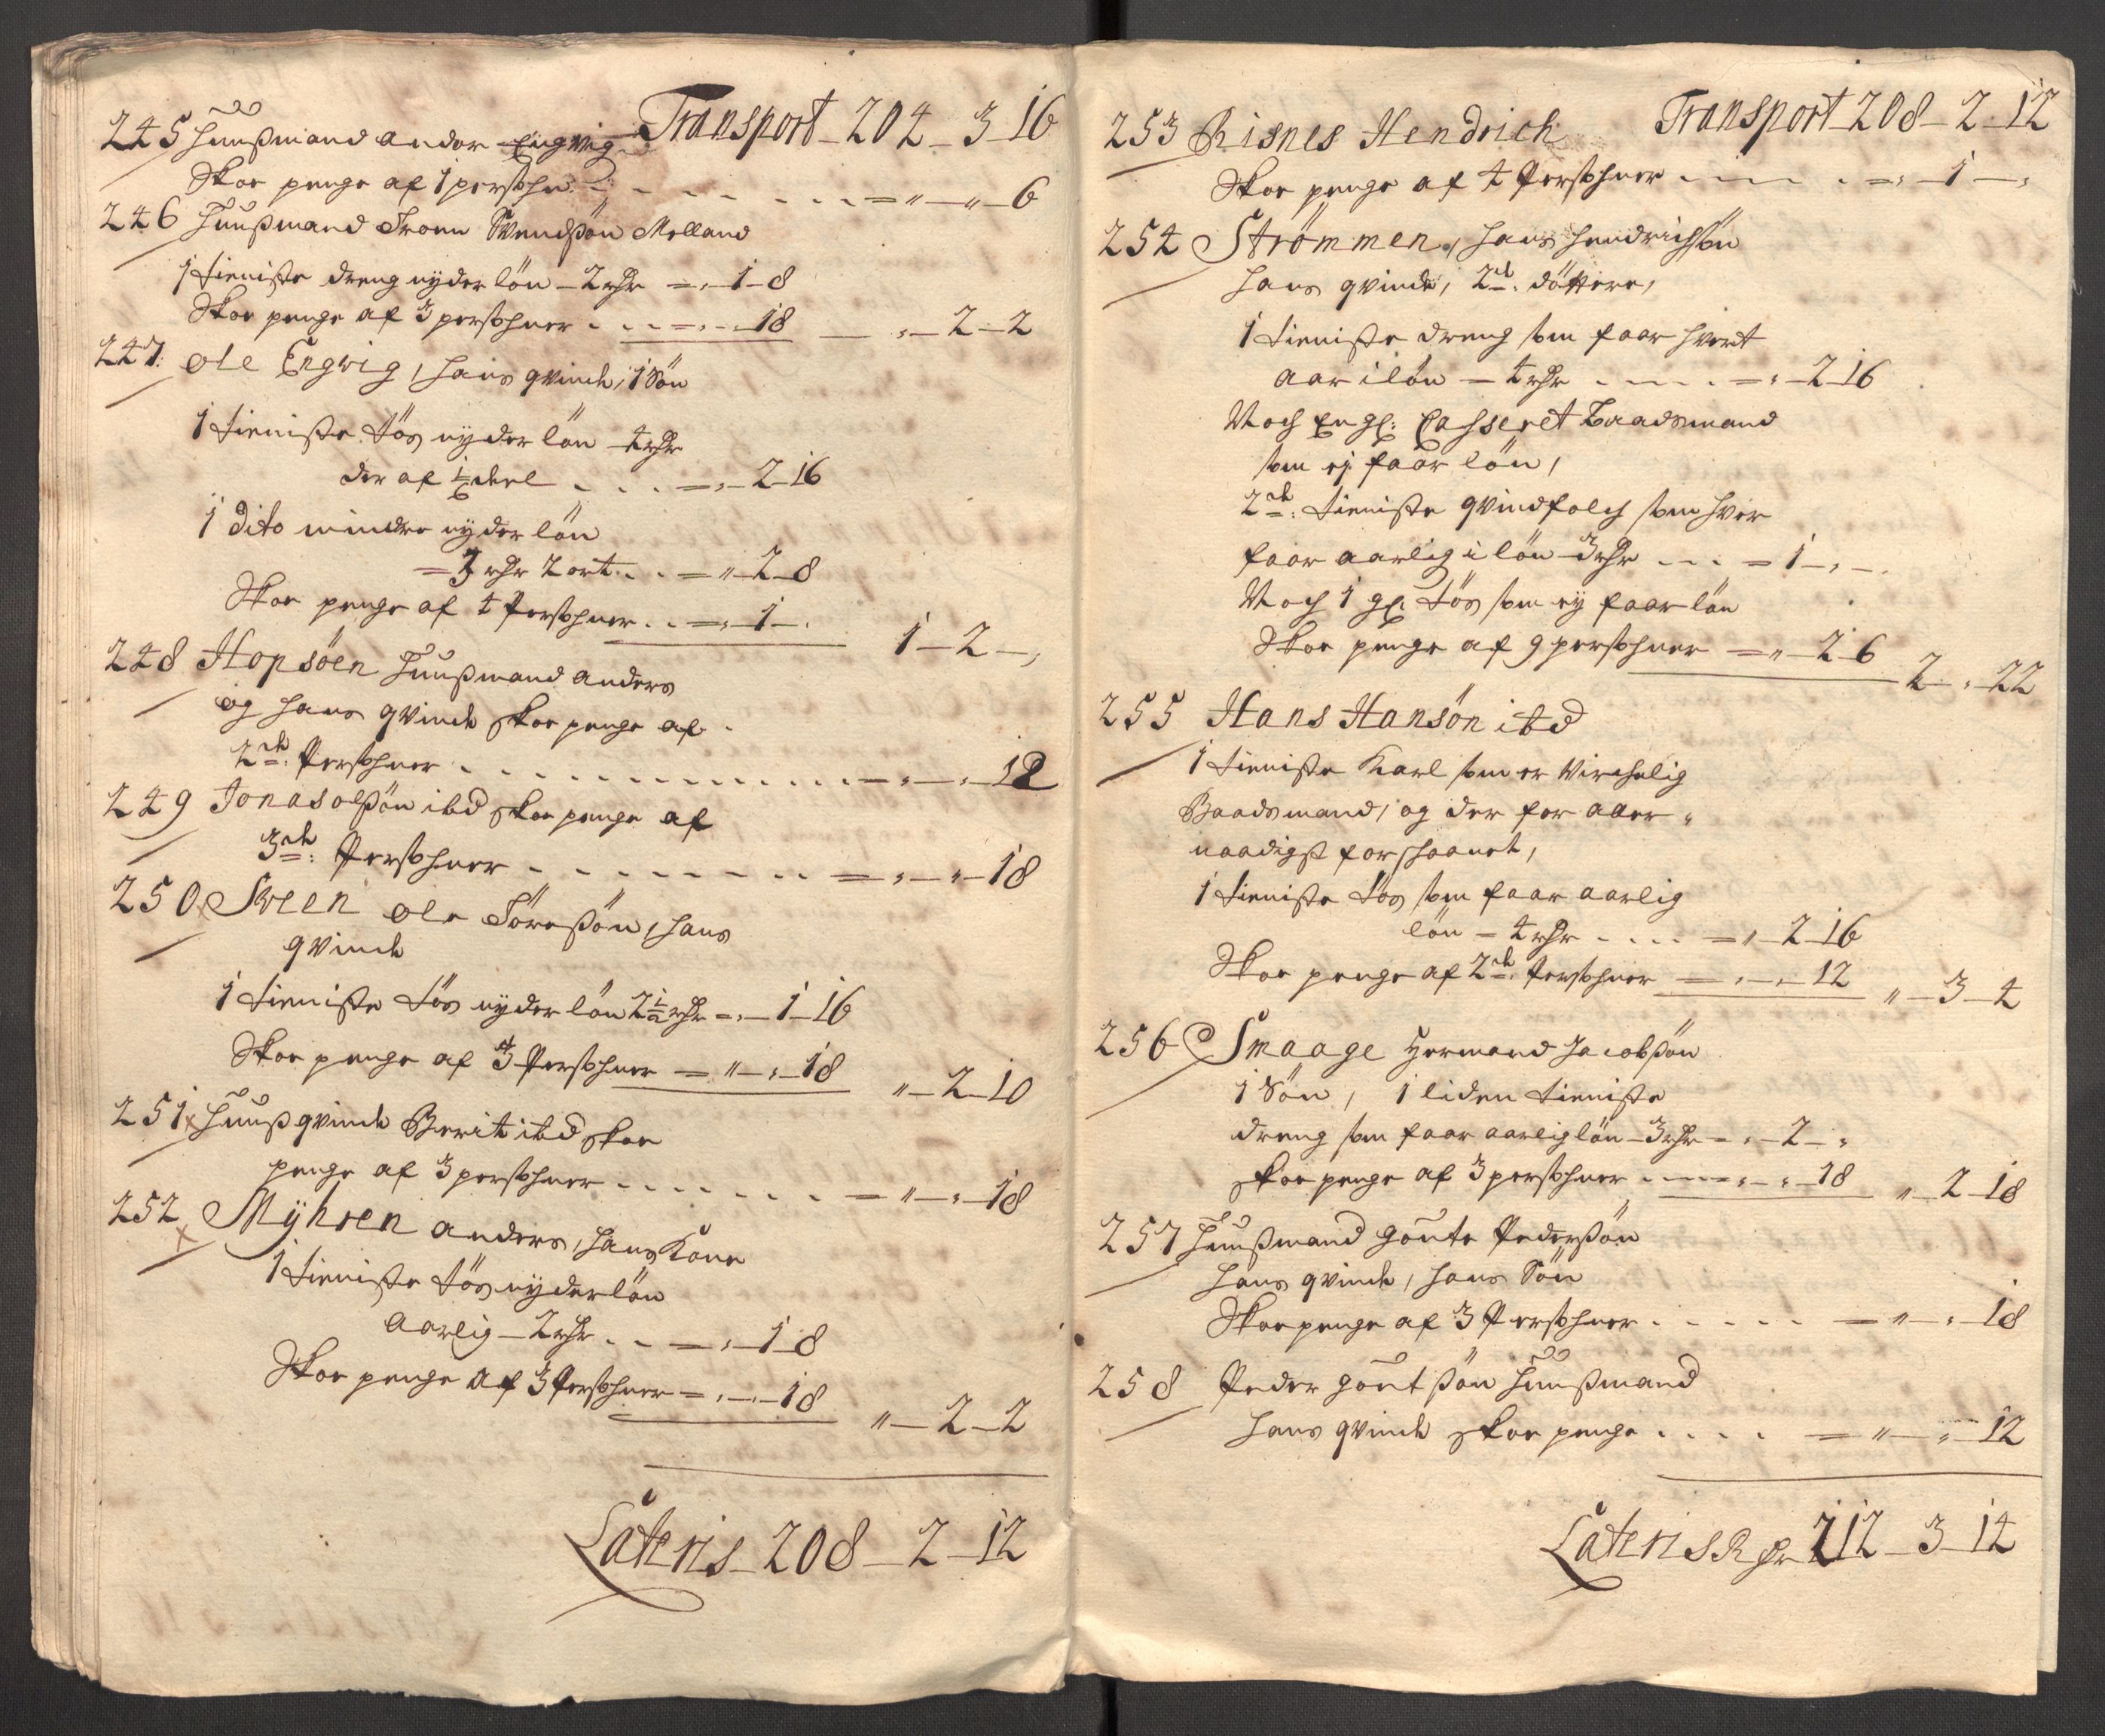 Transport - 204 - 3 - 16
245 Huußmand Andor Engvig
Skoe penge af 1 persohn - - - - = " - " - 6
246 Huußmand Troen Svendßön Molland
1 tieniste dreng nyder lön - 2 rdr = " - 1 - 8
Skoe penge af 3 persohner - - - = " - " - 18 — " - 2 - 2
247. ole Engvig, hans qvinde, 1 Sön
1 tieniste tös nyder lön 4 rdr
der af 1/6 deel . . . = " - 2 - 16
1 dito mindre nyder lön
= 3 rdr 2 ort . . = " - 2 - 8
Skoe penge af 4 Persohner . . = " - 1 - "
1 - 2 - "
248 Hopsöen Huußmand anders
og hans qvinde skoe penge af
2de. Persohner . . . . . . = " - " - 12
249 Jonas olßön ibd skoe penge af
3de: Persohner - - - - - = " - " - 18
250 Sveen ole Töreßön, hans
qvinde
1 tieniste tös nyder lön 2 1/2 rdr = " - 1 - 16
Skoe penge af 3 Persohner = " - " - 18 " - 2 - 10
251 Huuß qvinde Berit ibd skoe
penge af 3 persohner - - - - - = " - " - 18
252 Myhren anders, hans Kone
1 tieniste tös nyder lön
Aarlig - 2 rdr - - = " - 1 - 8
Skoe penge af 3 Persohner = " - " - 18
" - 2 - 2
Lateris - 208 - 2 - 12
Transport - 208 - 2 - 12
253 Risnes Hendrich
Skoe penge af 4 Persohner - - - = " - 1 - "
254 Strömmen, hans hendrichsön
hans qvinde, 2de. döttere,
1 tieniste dreng som faar hvert
aar i lön = 4 rdr - - - = " - 2 - 16
Noch Baadsmand
som ej faar lön,
2de. tieniste qvindfolch som hver
faar aarlig i lön 3 rdr - - - = 1 - " - "
Noch 1 gl. tös som ey faar lön
Skoe penge af 9 persohner = " - 2 - 6
2 - " - 22
255 Hans Hansön ibd
1 tieniste Karl som er Virchelig
Baadsmand, og der for aller
naadigst forschaanet,
1 tieniste tös som faar aarlig
lön = 4 rdr - - - = " - 2 - 16
Skoe penge af 2de. Persohner = " - " - 12 " - 3 - 4
256 Smaage Hermand Jacobßön
1 Sön, 1 liden tieniste
dreng som faar aarlig lön - 3 rdr = " - 2 - "
skoe penge af 3 persohner - - - = " - " - 18 " - 2 - 18
257 Huußmand goute Pederßön
hans qvinde, hans Sön
Skoe penge af 3 Persohner - - - - = " - " - 18
258 Peder goutßön Huußmand
hans qvinde skoe penge . . . . = " - " - 12
Lateris Rdr 212 - 3 - 14